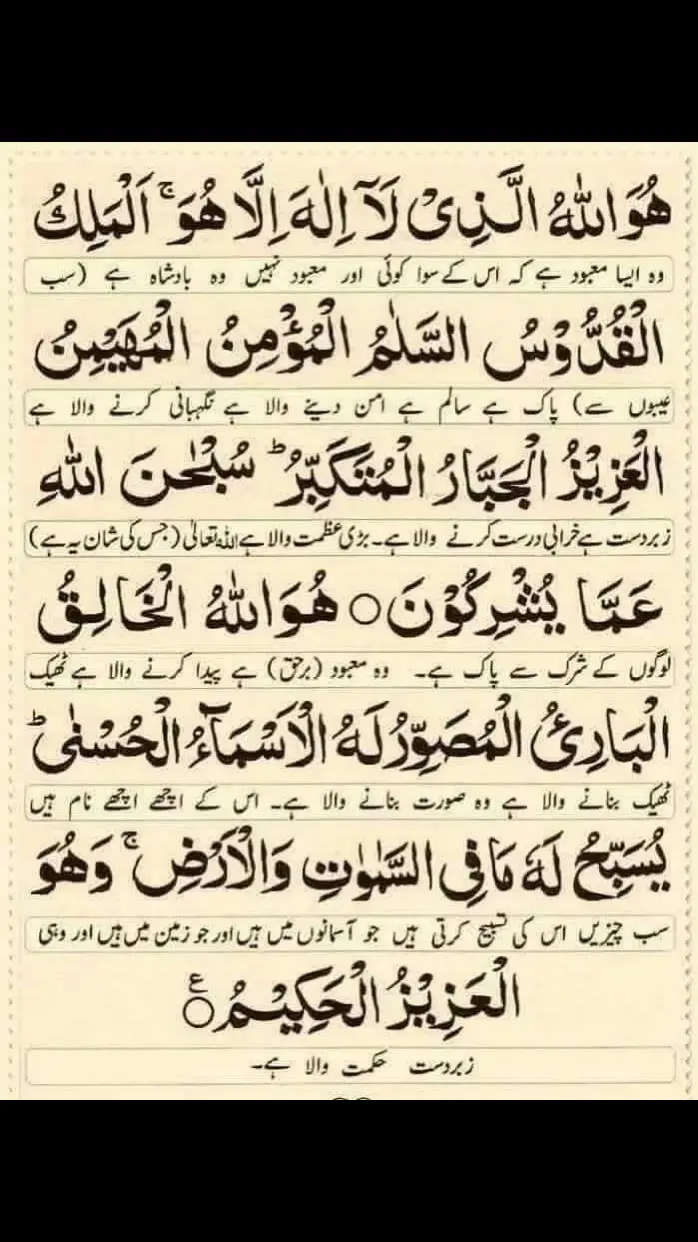 هُوَ اللّٰهُ الَّذِیْ لَاۤ اِلٰهَ اِلَّا هُوَ ۚ اَلْمَلِكُ
وہ ایسا معبود ہے کہ اس کے سوا کوئی اور معبود نہیں وہ بادشاہ ہے (سب
الْقُدُّوْسُ السَّلٰمُ الْمُؤْمِنُ الْمُهَیْمِنُ
عیبوں سے) پاک ہے سالم ہے امن دینے والا ہے نگہبانی کرنے والا ہے
الْعَزِیْزُ الْجَبَّارُ الْمُتَكَبِّرُ ؕ سُبْحٰنَ اللّٰهِ
زبردست ہے خرابی درست کرنے والا ہے۔ بڑی عظمت والا ہے اللہ تعالٰی (جس کی شان یہ ہے)
عَمَّا یُشْرِكُوْنَ ○ هُوَ اللّٰهُ الْخَالِقُ
لوگوں کے شرک سے پاک ہے۔ وہ معبود (برحق) ہے پیدا کرنے والا ہے ٹھیک
الْبَارِئُ الْمُصَوِّرُ لَهُ الْاَسْمَآءُ الْحُسْنٰی ؕ
ٹھیک بنانے والا ہے وہ صورت بنانے والا ہے۔ اس کے اچھے اچھے نام ہیں
یُسَبِّحُ لَهٗ مَا فِی السَّمٰوٰتِ وَالْاَرْضِ ۚ وَهُوَ
سب چیزیں اس کی تسبیح کرتی ہیں جو آسمانوں میں ہیں اور جو زمین میں ہیں اور وہی
الْعَزِیْزُ الْحَكِیْمُ ○ ع
زبردست حکمت والا ہے۔